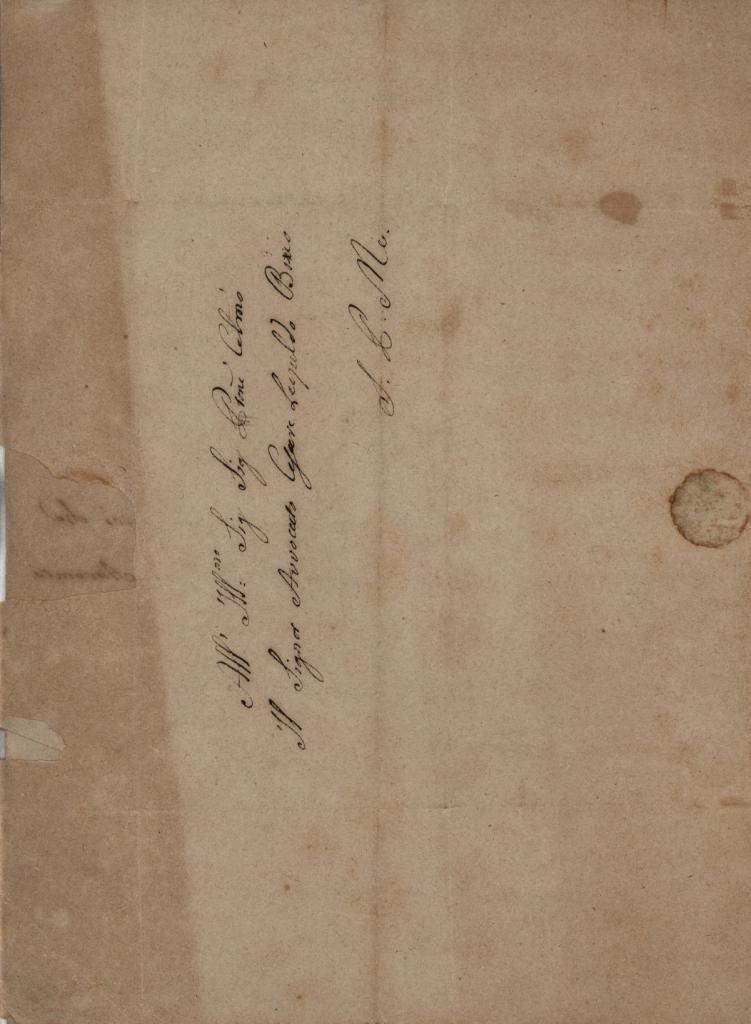 All' Ill:mo Sig Sig Prone Colmo
Il Signor Avvocato Cesare Leopoldo Bixio
S. P. M.